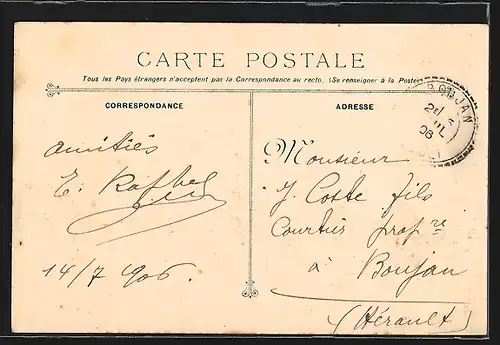 CARTE POSTALE
Tous les Pays étrangers n'acceptent pas la Correspondance au recto. (Se renseigner à la Poste)
CORRESPONDANCE
amitiés
E.
14/7 906.
ADRESSE
Monsieur
J. Coste fils
Courtier prop re
à Boujan
(Hérault)
BOUJAN
08